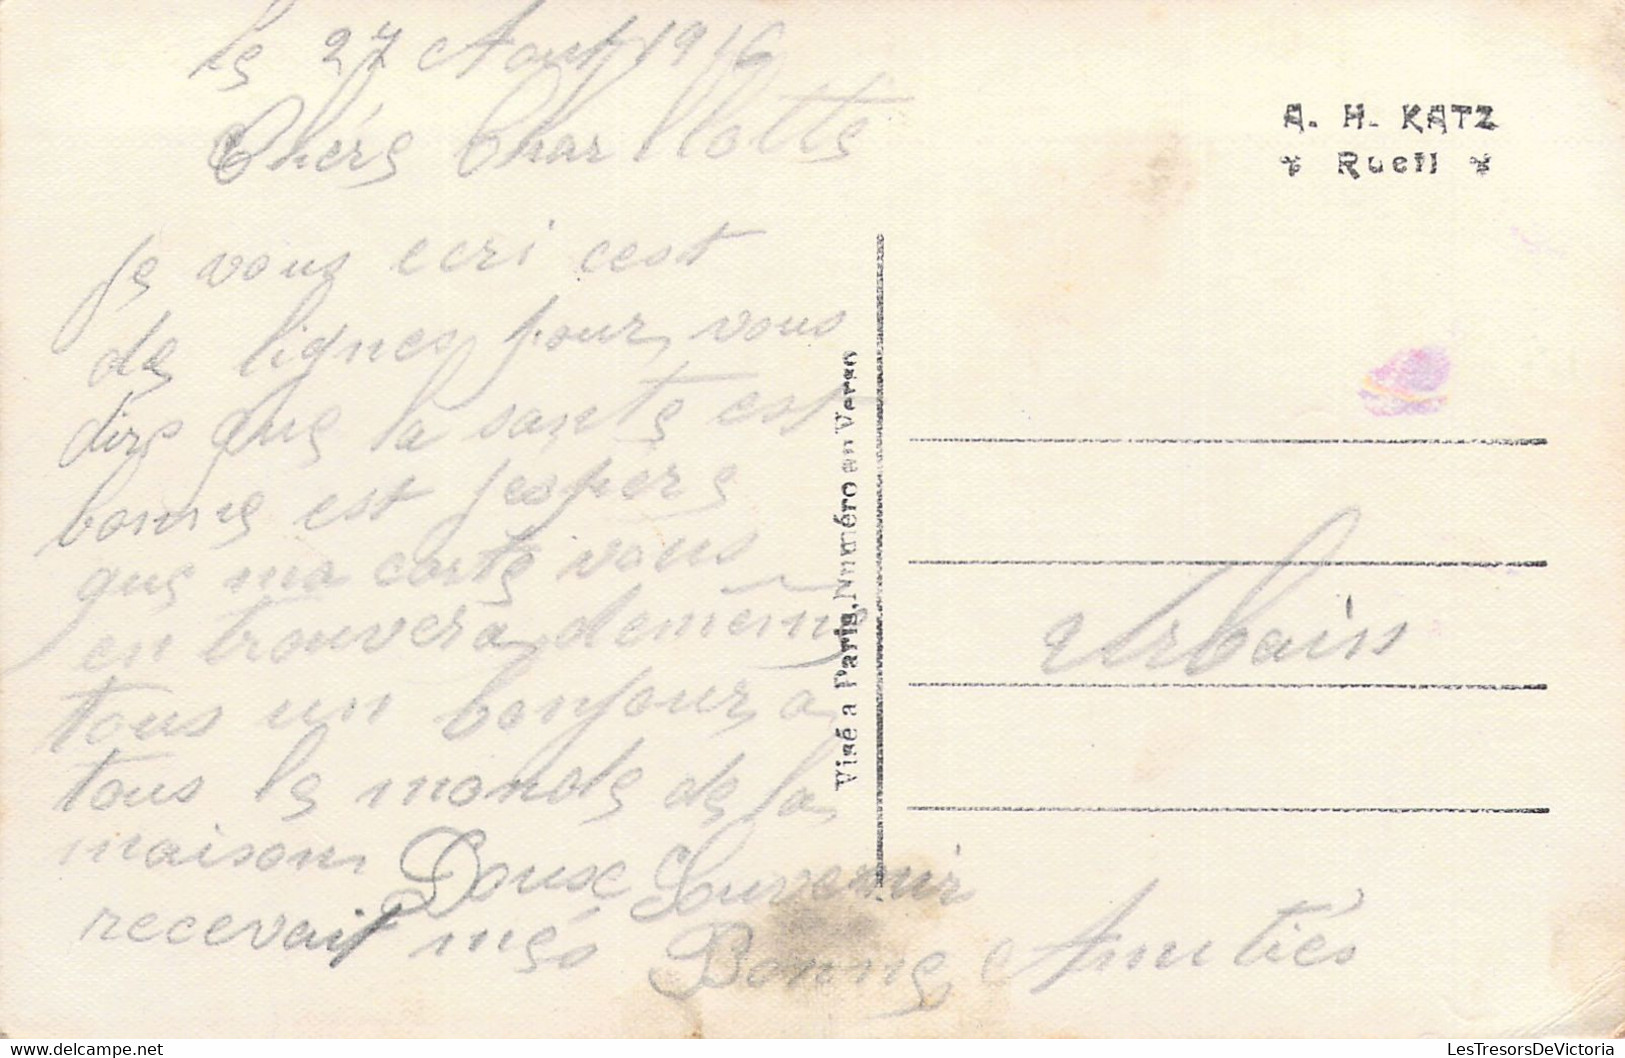 le 27 Aout 1916
Chére Charllotte
je vous ecri cest
de lignes pour vous
dire que la sante est
bonne est jespére
que ma carte vous
en trouvera deméme
tous un bonjour a
tous le monde de la
maison Doux Souvenir
recevait més Bonne Amitiés
Urbain
A. H. KATZ
Rueil
Visé a Paris, Numéro au Verso
LesTresorsDeVictoria